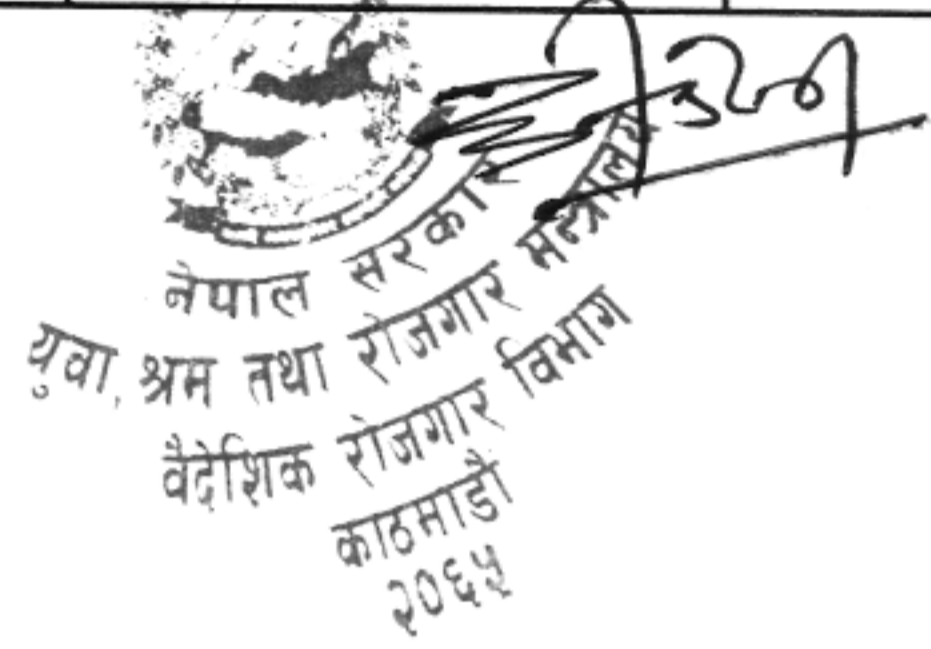 नेपाल सरकार
युवा, श्रम तथा रोजगार मन्त्रालय
वैदेशिक रोजगार विभाग
काठमाडौं
२०६५